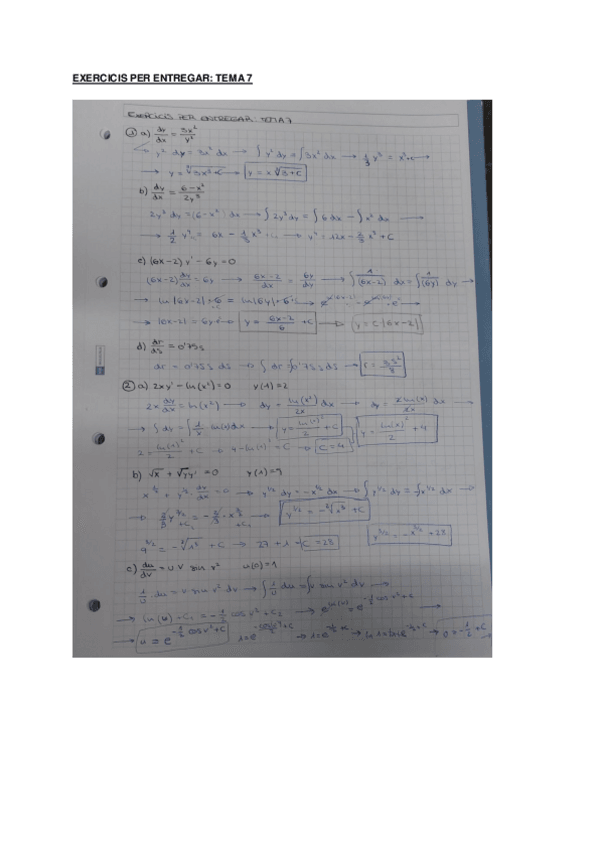 EXERCICIS PER ENTREGAR: TEMA 7
EXERCICIS PER ENTREGAR: TEMA 7
1 a) dy/dx = 3x²/y²
y² dy = 3x² dx → ∫ y² dy = ∫ 3x² dx → 1/3 y³ = x³+c →
b) dy/dx = 6-x²/2y³
2y³ dy = (6-x²) dx → ∫ 2y³ dy = ∫ 6 dx - ∫ x² dx →
→ 1/2 y⁴ = 6x - 1/3 x³ → y⁴ = 12x - 2/3 x³ + C
c) (6x-2) y' - 6y = 0
(6x-2) dy/dx = 6y → 6x-2/dx = 6y/dy → ∫ 1/(6x-2) dx = ∫ 1/(6y) dy →
→ |6x-2| = 6y → y = 6x-2/6 + C → y = C |6x-2|
d) dr/ds = 0'75s
dr = 0'75s ds → ∫ dr = ∫ 0'75s ds → r = 3s²/8
2 a) 2xy' - ln(x²) = 0 y(1) = 2
2x dy/dx = ln(x²) → dy = ln(x²)/2x dx → dy = 2 ln(x)/2x dx →
→ ∫ dy = ∫ 1/x ln(x) dx → y = ln(x)²/2 + C → y = ln(x)²/2 + 4
2 = ln(x)²/2 + C → 4 - ln(x) = C → C = 4
b) √x + √y y' = 0 y(1) = 9
x^1/2 + y^1/2 · dy/dx = 0 → y^1/2 dy = -x^1/2 dx → ∫ y^1/2 dy = ∫ -x^1/2 dx →
→ 2/3 y^3/2 + C₁ = -2/3 · x^3/2 + C₂ → y^3/2 = -√x³ + C
9^3/2 = -√1³ + C → 27 + 1 = C = 28 y^3/2 = -x^3/2 + 28
c) du/dv = u v sin v² u(0) = 1
1/u · du = v sin v² dv → ∫ 1/u du = ∫ v sin v² dv →
→ ln(u) + C₁ = -1/2 cos v² + C₂ → e^ln(u) = e^-1/2 cos v² + C →
→ u = e^-1/2 cos v² + C